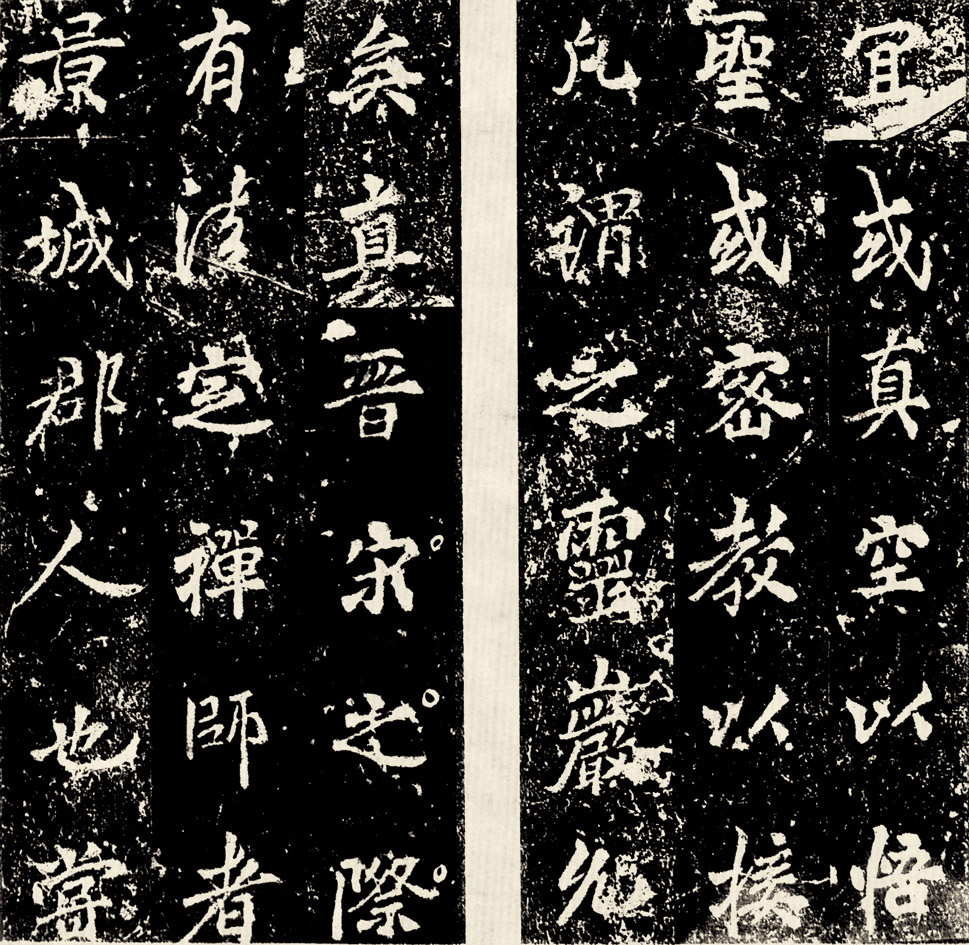 宜或真空以悟
聖或密教以接
凡謂之靈巖允
矣真晉宋之際
有法定禪師者
景城郡人也嘗